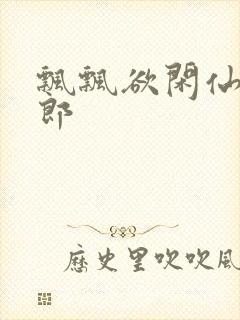 飄飄欲閑仙
郎
歷史里吹吹風